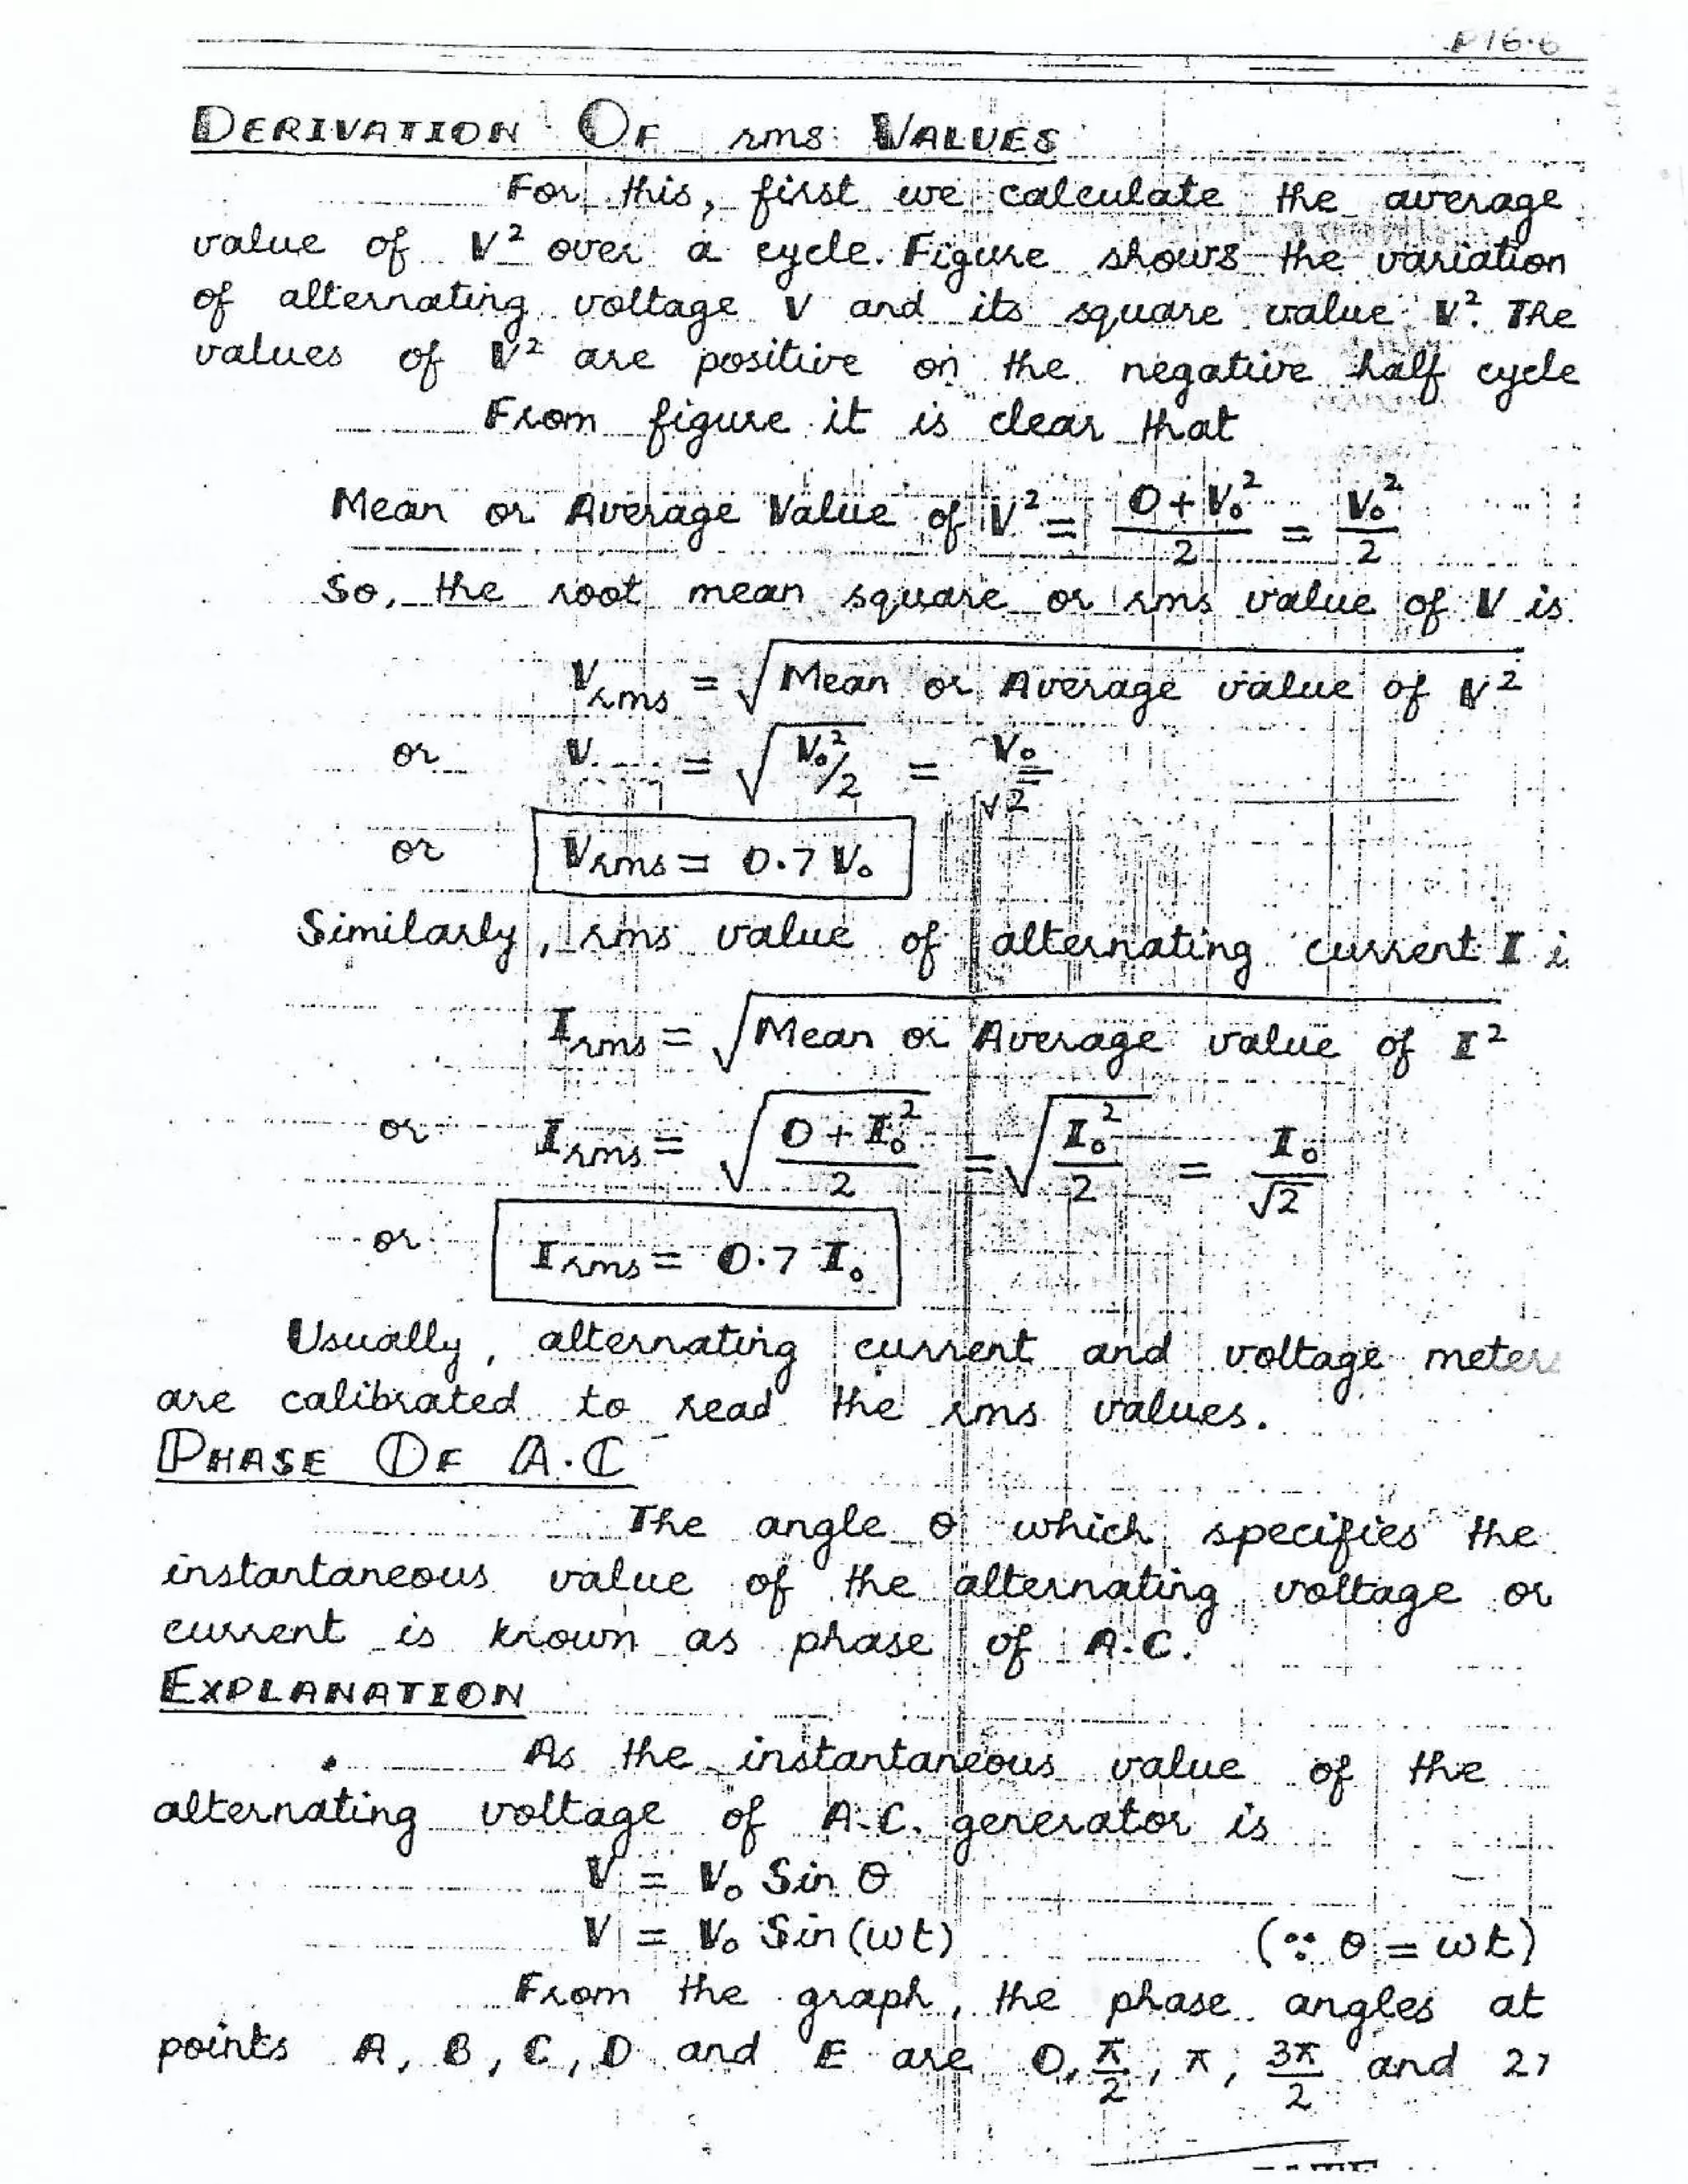 P16.6
DERIVATION OF rms VALUES
For this, first we calculate the average
value of V² over a cycle. Figure shows the variation
of alternating voltage V and its square value V². The
values of V² are positive on the negative half cycle
From figure it is clear that
Mean or Average Value of V² = (0 + V₀²)/2 = V₀²/2
So, the root mean square or rms value of V is
Vrms = √(Mean or Average value of V²)
or V = √(V₀²/2) = V₀/√2
or Vrms = 0.7 V₀
Similarly, rms value of alternating current I i
Irms = √(Mean or Average value of I²)
or Irms = √((0 + I₀²)/2) = √(I₀²/2) = I₀/√2
or Irms = 0.7 I₀
Usually, alternating current and voltage meter
are calibrated to read the rms values.
PHASE OF A.C
The angle θ which specifies the
instantaneous value of the alternating voltage or
current is known as phase of A.C.
EXPLANATION
As the instantaneous value of the
alternating voltage of A.C. generator is
V = V₀ Sin θ
V = V₀ Sin (ωt) (∵ θ = ωt)
From the graph, the phase angles at
points A, B, C, D and E are 0, π/2, π, 3π/2 and 2